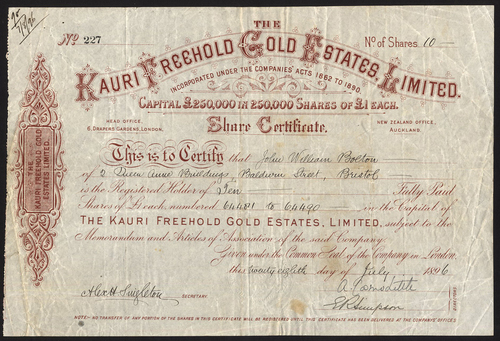 THE
No 227
No of Shares 10
KAURI FREEHOLD GOLD ESTATES, LIMITED.
INCORPORATED UNDER THE COMPANIES' ACTS 1862 TO 1890.
CAPITAL £250,000 IN 250,000 SHARES OF £1 EACH.
HEAD OFFICE.
6, DRAPERS GARDENS, LONDON.
Share Certificate.
NEW ZEALAND OFFICE.
AUCKLAND
This is to Certify that John William Bolton
of 2 Queen Anne Buildings, Baldwin Street, Bristol
is the Registered Holder of Ten Fully Paid
Shares of £1 each, numbered 64481 to 64490 in the Capital of
THE KAURI FREEHOLD GOLD ESTATES, LIMITED, subject to the
Memorandum and Articles of Association of the said Company.
Given under the Common Seal of the Company in London,
this twenty eighth day of July 1896
Alex H Singleton SECRETARY.
DIRECTORS
NOTE:-NO TRANSFER OF ANY PORTION OF THE SHARES IN THIS CERTIFICATE WILL BE REGISTERED UNTIL THIS CERTIFICATE HAS BEEN DELIVERED AT THE COMPANY'S OFFICES
THE
KAURI FREEHOLD GOLD
ESTATES LIMITED.